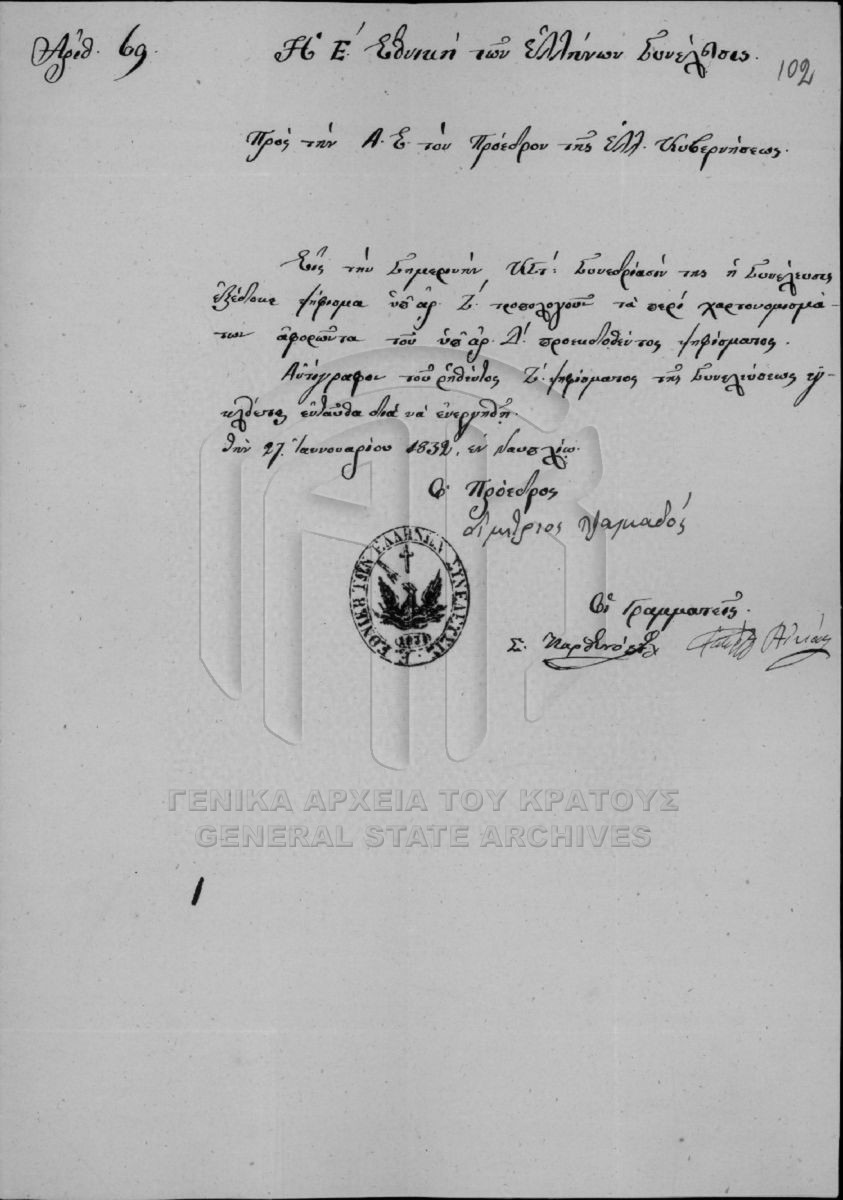 Ἀριθ. 69.
Ἡ Ε΄. Ἐθνικὴ τῶν Ἑλλήνων Συνέλευσις.
102
Πρὸς τὴν Α. Ε. τὸν Πρόεδρον τῆς Ἑλλ. Κυβερνήσεως.
Εἰς τὴν σημερινὴν ΚΣτ΄: Συνεδρίασίν της ἡ Συνέλευσις
ἐξέδωκε ψήφισμα ὑπ' ἀρ. Ζ΄. τροπολογοῦν τὰ περὶ χαρτονομισμά-
των ἀφορῶντα τοῦ ὑπ' ἀρ. Δ΄. προεκδοθέντος ψηφίσματος.
Αὐτόγραφον τοῦ ῥηθέντος Ζ΄. ψηφίσματος τῆς Συνελεύσεως ἐγ-
κλείεται ἐνταῦθα διὰ νὰ ἐνεργηθῇ.
τὴν 27. Ἰαννουαρίου 1832, ἐν Ναυπλίῳ.
Ὁ Πρόεδρος
Δημήτριος Τζαμαδός
Ε. ΕΘΝΙΚΗ ΤΩΝ ΕΛΛΗΝΩΝ ΣΥΝΕΛΕΥΣΙΣ
1831
Οἱ Γραμματεῖς.
Σ.
ΓΕΝΙΚΑ ΑΡΧΕΙΑ ΤΟΥ ΚΡΑΤΟΥΣ
GENERAL STATE ARCHIVES